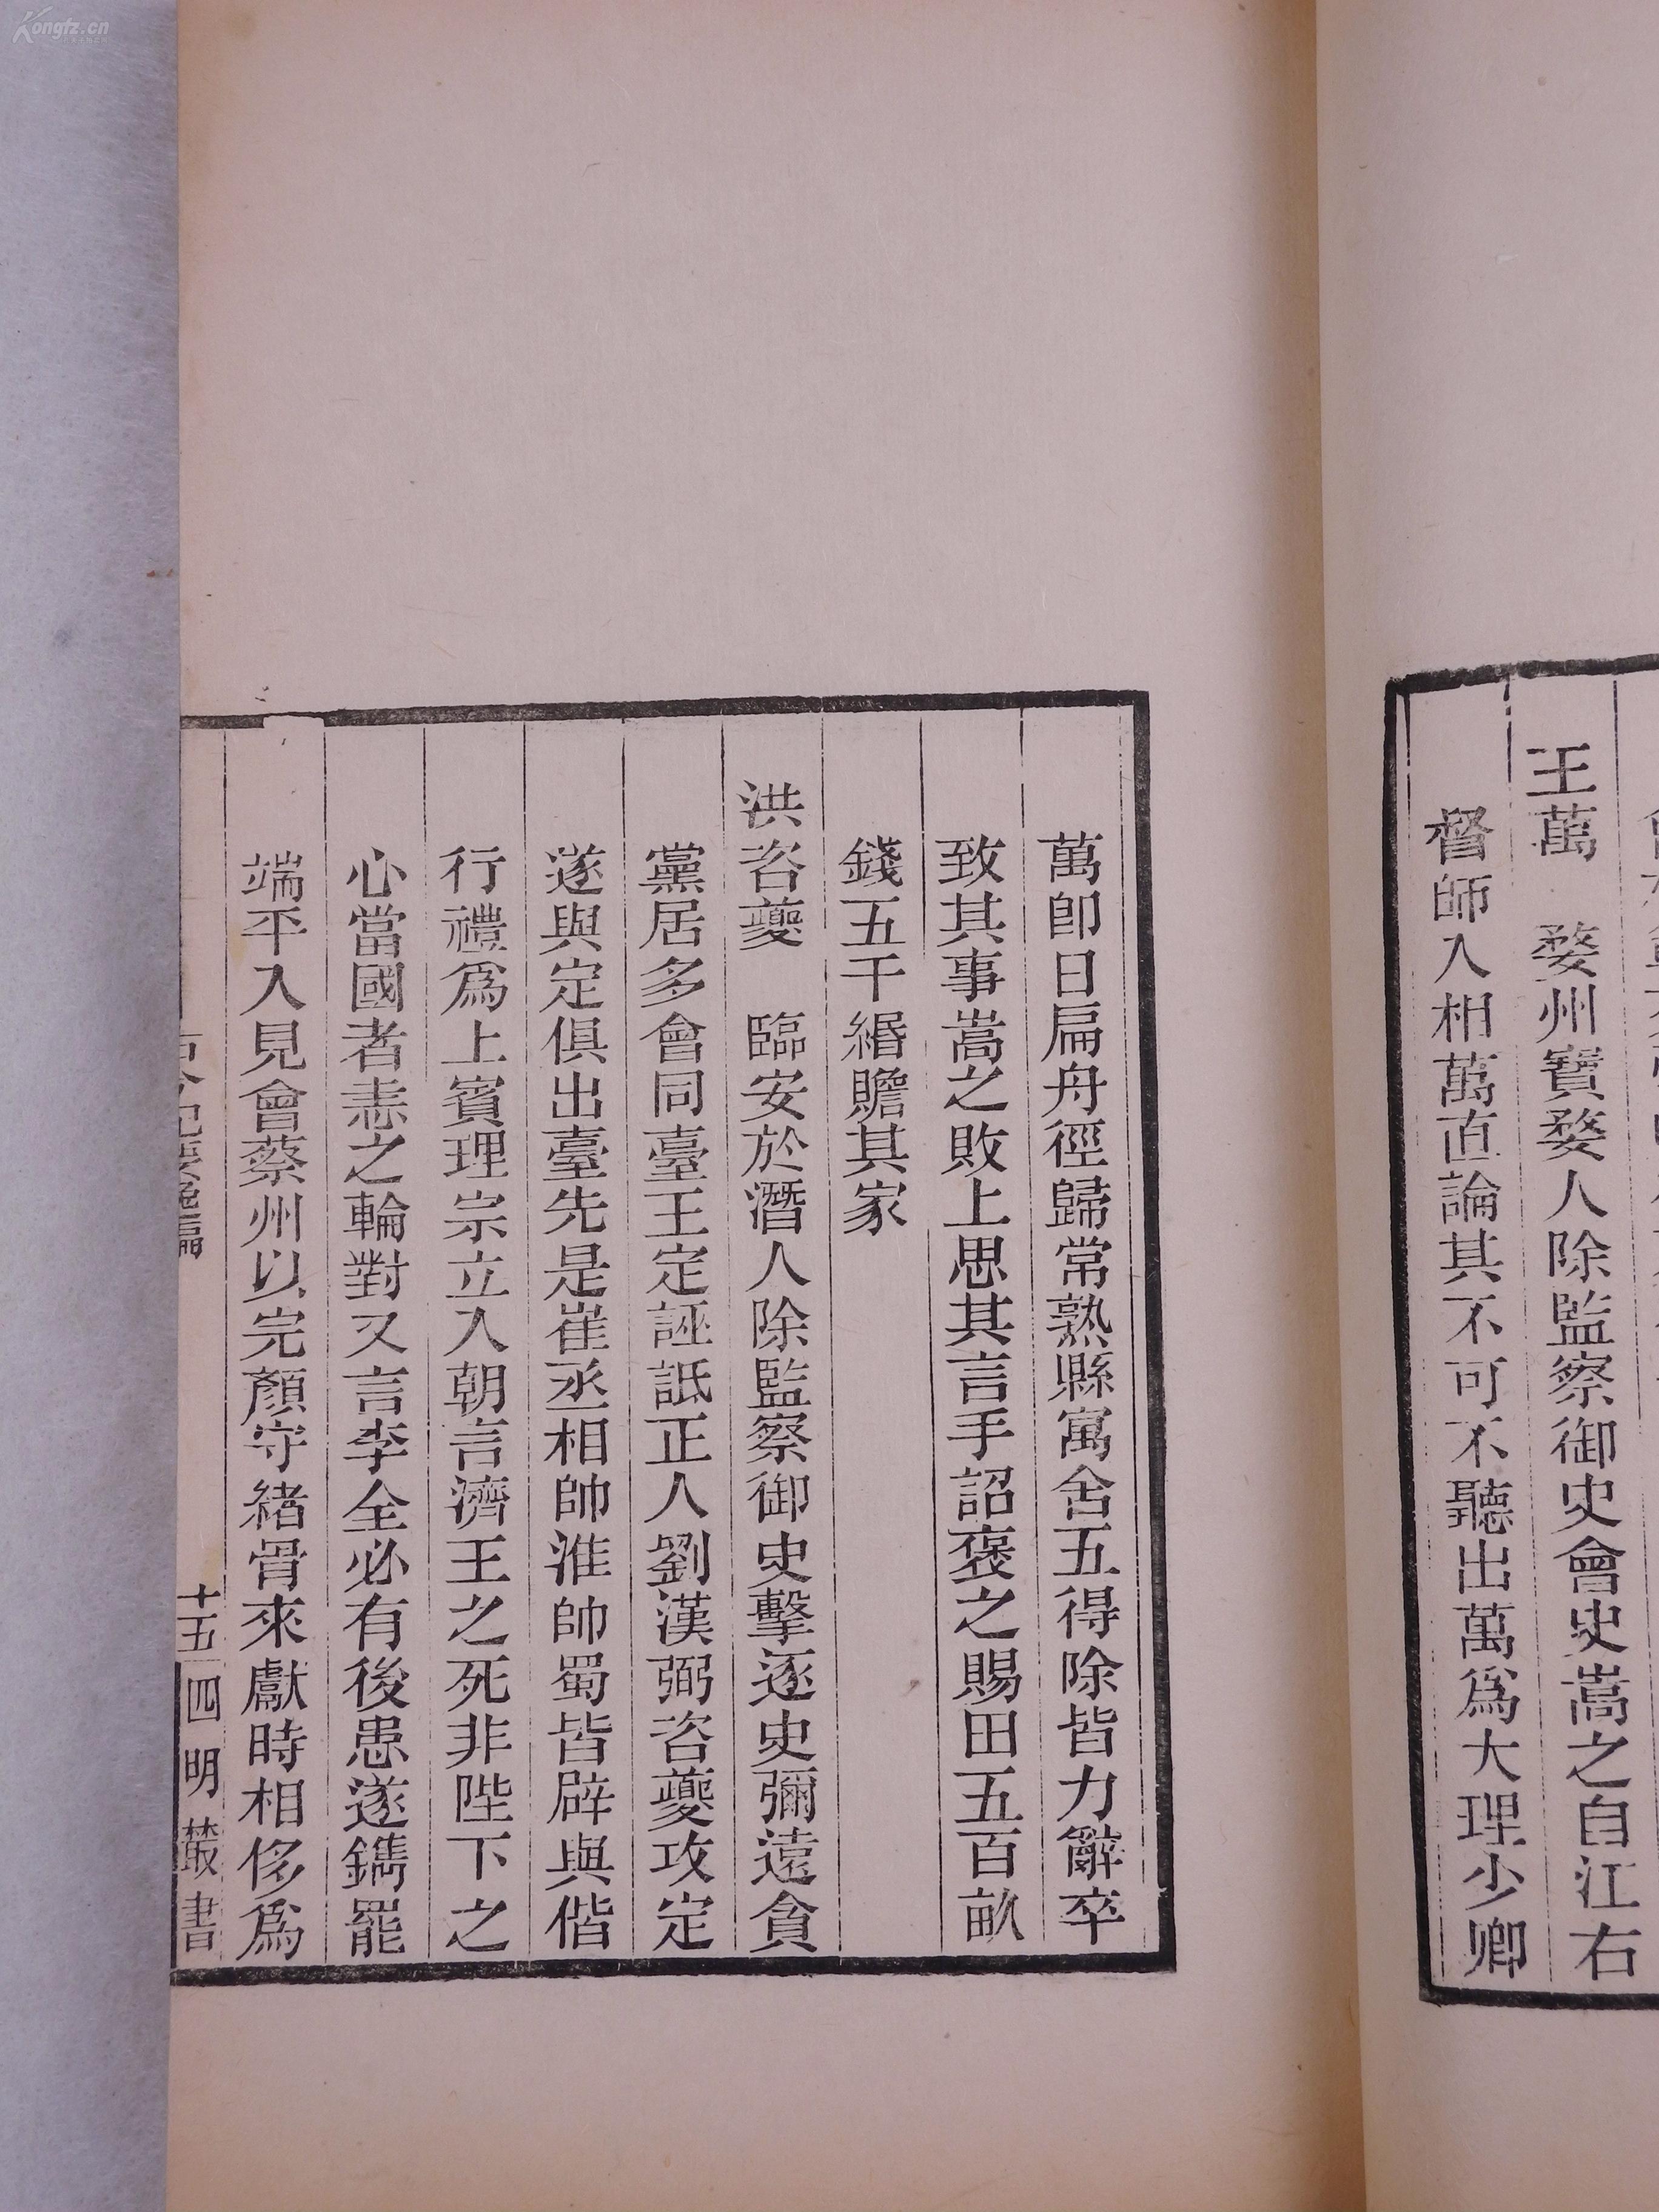 王萬　婺州寶婺人除監察御史會史嵩之自江右
督師入相萬直論其不可不聽出萬爲大理少卿
萬卽日扁舟徑歸常熟縣寓舍五得除皆力辭卒
致其事嵩之敗上思其言手詔褒之賜田五百畝
錢五千緡贍其家
洪咨夔　臨安於潛人除監察御史擊逐史彌遠貪
黨居多會同臺王定誣詆正人劉漢弼咨夔攻定
遂與定俱出臺先是崔丞相帥淮帥蜀皆辟與偕
行禮爲上賓理宗立入朝言濟王之死非陛下之
心當國者恚之輪對又言李全必有後患遂鐫罷
端平入見會蔡州以完顏守緖骨來獻時相侈爲
古今紀要逸編
十五
四明叢書
Kongfz.cn